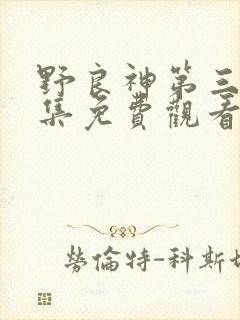 野良神第三
集免費觀看
勞倫特-科斯